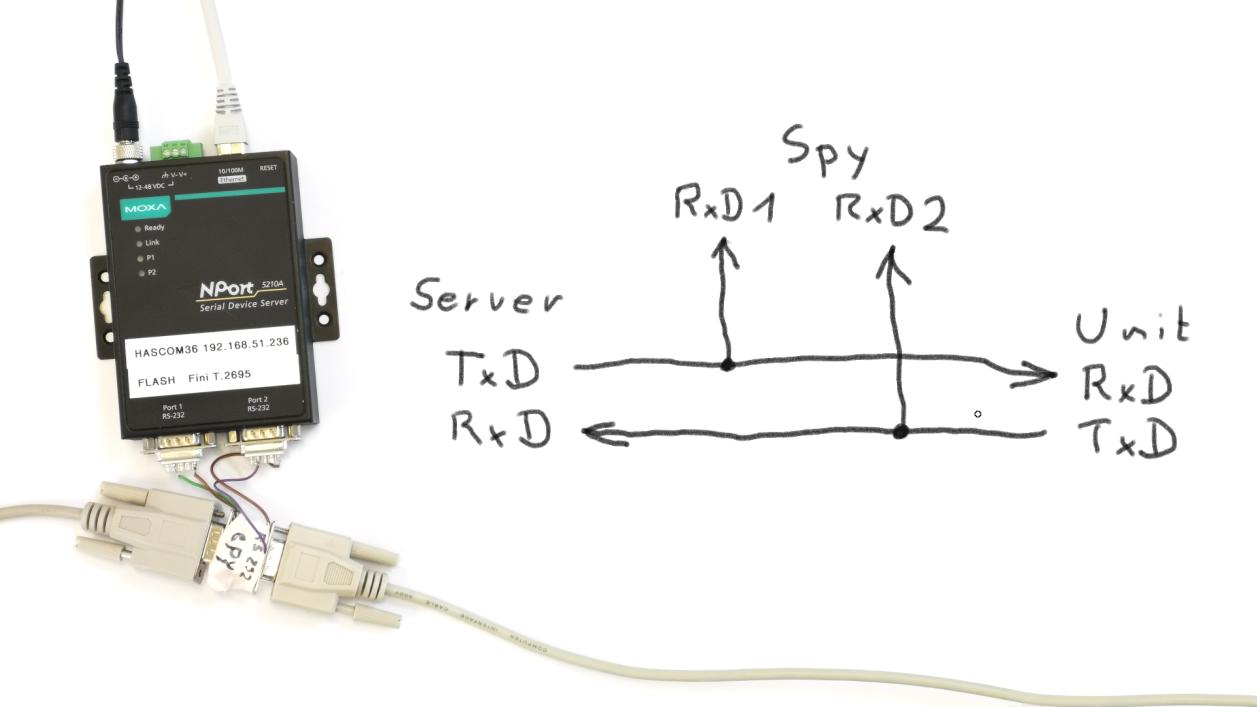 12-48 VDC
V- V+
10/100M
Ethernet
RESET
MOXA
Ready
Link
P1
P2
NPort 5210A
Serial Device Server
HASCOM36 192.168.51.236
FLASH Fini T.2695
Port 1
RS-232
Port 2
RS-232
RS 232
Spy
COMPUTER INTERFACE CABLE
Spy
RxD1 RxD2
Server
TxD
RxD
Unit
RxD
TxD